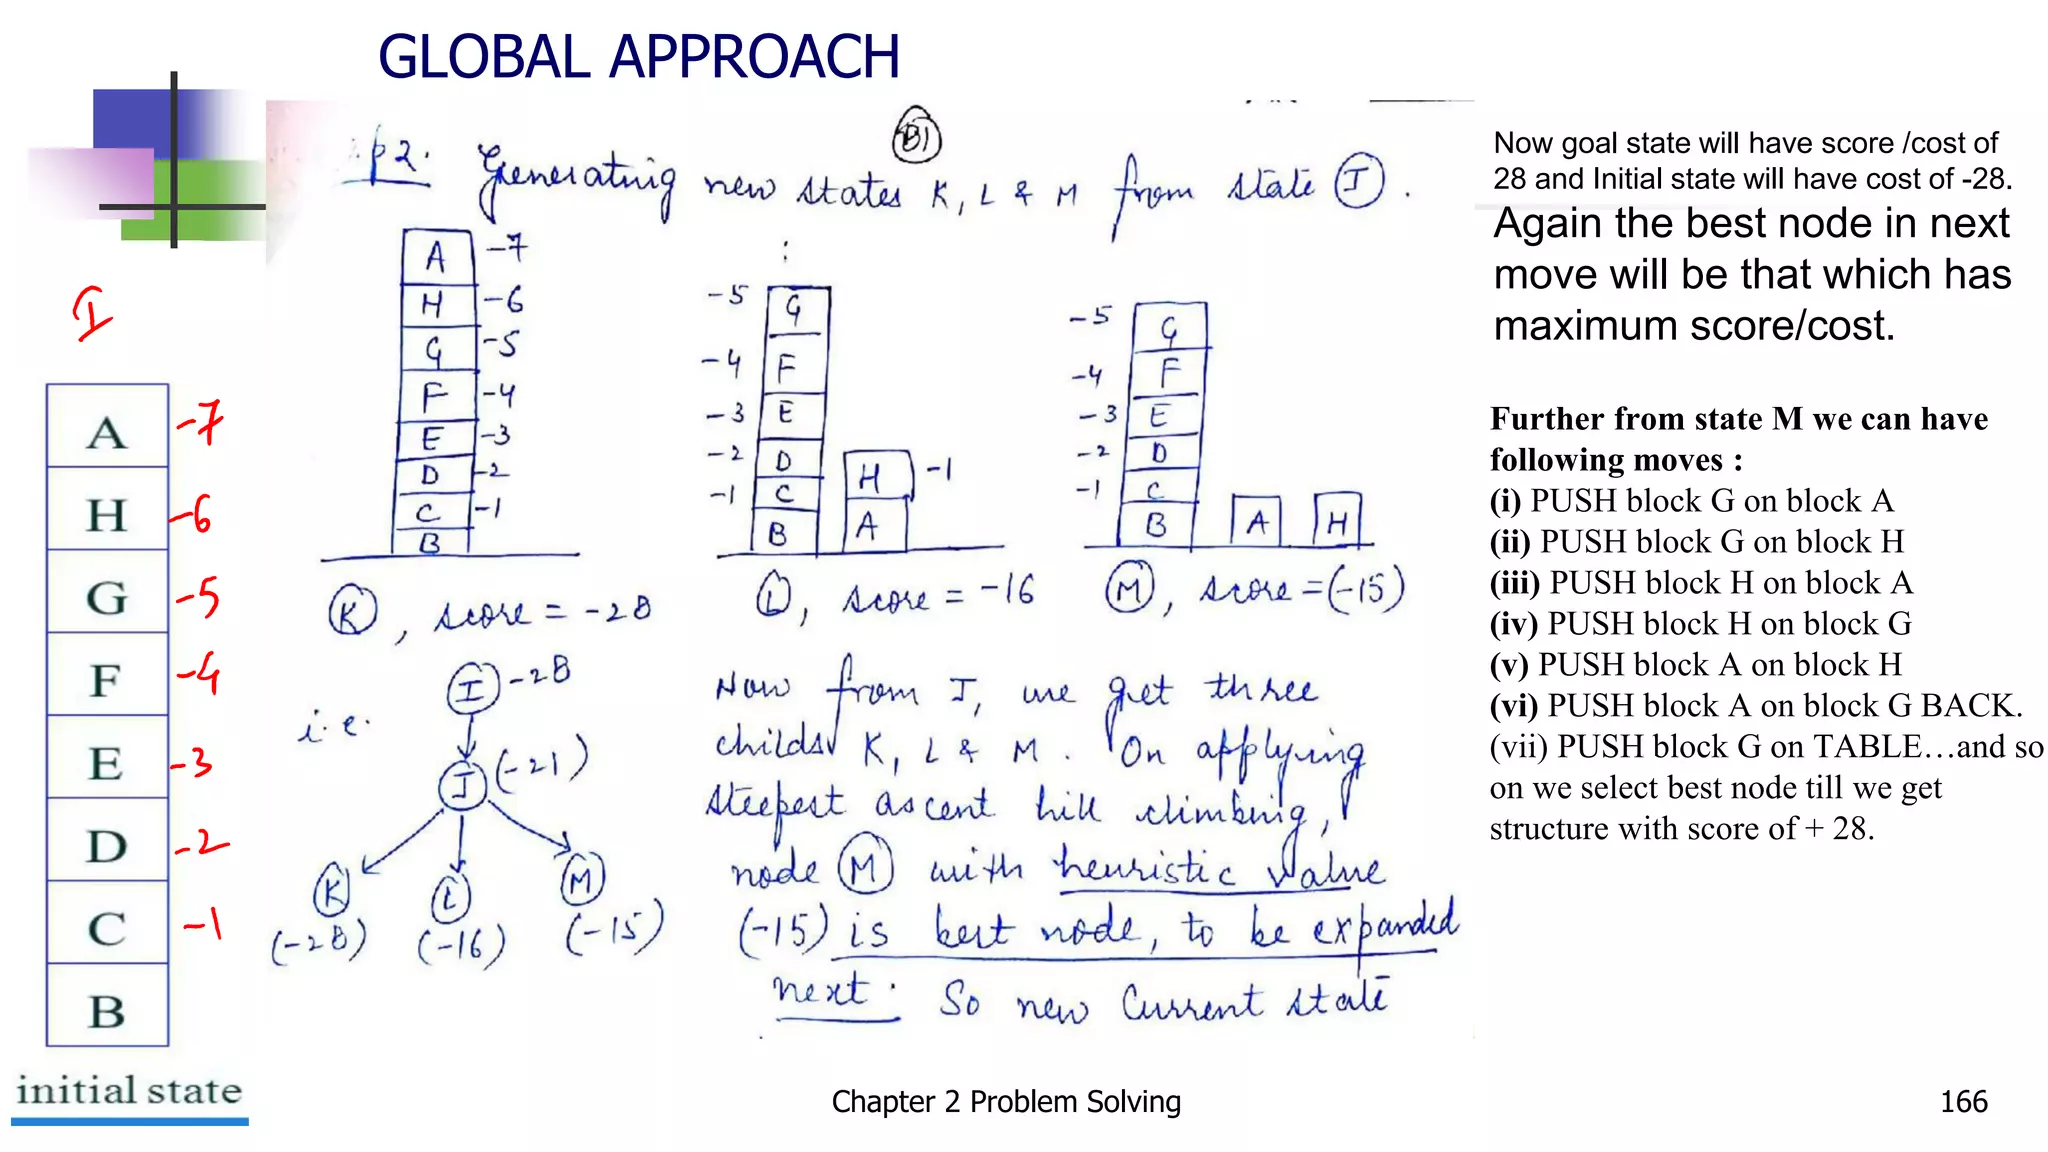 GLOBAL APPROACH
p2. Generating new states K, L & M from state I.
B1
A -7
H -6
G -5
F -4
E -3
D -2
C -1
B
K, score = -28
-5 G
-4 F
-3 E
-2 D
-1 C
B
H -1
A
L, score = -16
-5 G
-4 F
-3 E
-2 D
-1 C
B
A
H
M, score = (-15)
i.e.
I -28
J (-21)
K L M
(-28) (-16) (-15)
Now from J, we get three
childs K, L & M. On applying
steepest ascent hill climbing,
node M with heuristic value
(-15) is best node, to be expanded
next. So new Current state
I
A -7
H -6
G -5
F -4
E -3
D -2
C -1
B
initial state
Now goal state will have score /cost of
28 and Initial state will have cost of -28.
Again the best node in next
move will be that which has
maximum score/cost.
Further from state M we can have
following moves :
(i) PUSH block G on block A
(ii) PUSH block G on block H
(iii) PUSH block H on block A
(iv) PUSH block H on block G
(v) PUSH block A on block H
(vi) PUSH block A on block G BACK.
(vii) PUSH block G on TABLE…and so
on we select best node till we get
structure with score of + 28.
Chapter 2 Problem Solving
166